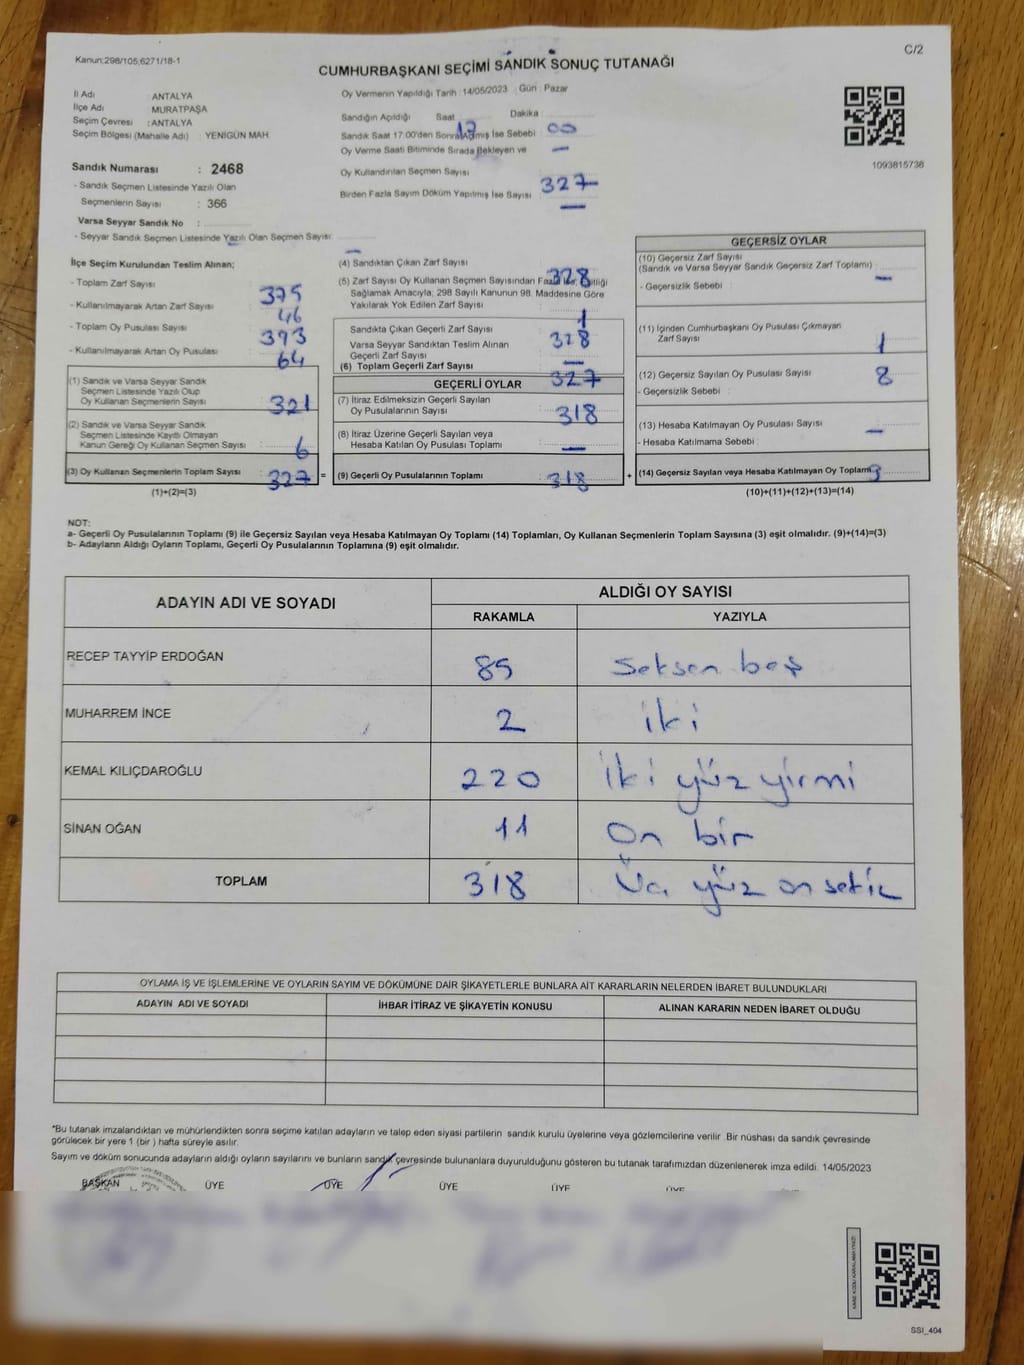 Kanun:298/105,6271/18-1
C/2
CUMHURBAŞKANI SEÇİMİ SANDIK SONUÇ TUTANAĞI
İl Adı : ANTALYA
İlçe Adı : MURATPAŞA
Seçim Çevresi : ANTALYA
Seçim Bölgesi (Mahalle Adı) : YENİGÜN MAH
Oy Vermenin Yapıldığı Tarih : 14/05/2023 Gün : Pazar
Sandığın Açıldığı Saat 17 Dakika 00
Sandık Saat 17:00'den Sonra Açılmış İse Sebebi
Oy Verme Saati Bitiminde Sırada Bekleyen ve
Oy Kullandırılan Seçmen Sayısı
Birden Fazla Sayım Döküm Yapılmış İse Sayısı
327
1093815738
Sandık Numarası : 2468
- Sandık Seçmen Listesinde Yazılı Olan
Seçmenlerin Sayısı : 366
Varsa Seyyar Sandık No :
- Seyyar Sandık Seçmen Listesinde Yazılı Olan Seçmen Sayısı:
İlçe Seçim Kurulundan Teslim Alınan;
- Toplam Zarf Sayısı : 375
- Kullanılmayarak Artan Zarf Sayısı : 46
- Toplam Oy Pusulası Sayısı : 393
- Kullanılmayarak Artan Oy Pusulası : 64
(1) Sandık ve Varsa Seyyar Sandık
Seçmen Listesinde Yazılı Olup
Oy Kullanan Seçmenlerin Sayısı : 321
(2) Sandık ve Varsa Seyyar Sandık
Seçmen Listesinde Kayıtlı Olmayan
Kanun Gereği Oy Kullanan Seçmen Sayısı : 6
(3) Oy Kullanan Seçmenlerin Toplam Sayısı : 327 =
(1)+(2)=(3)
(4) Sandıktan Çıkan Zarf Sayısı : 328
(5) Zarf Sayısı Oy Kullanan Seçmen Sayısından Fazla
Sağlamak Amacıyla; 298 Sayılı Kanunun 98. Maddesine Göre
Yakılarak Yok Edilen Zarf Sayısı : 1
Sandıkta Çıkan Geçerli Zarf Sayısı : 328
Varsa Seyyar Sandıktan Teslim Alınan
Geçerli Zarf Sayısı : —
(6) Toplam Geçerli Zarf Sayısı : 327
GEÇERLİ OYLAR
(7) İtiraz Edilmeksizin Geçerli Sayılan
Oy Pusulalarının Sayısı : 318
(8) İtiraz Üzerine Geçerli Sayılan veya
Hesaba Katılan Oy Pusulası Toplamı : —
(9) Geçerli Oy Pusulalarının Toplamı : 318 +
GEÇERSİZ OYLAR
(10) Geçersiz Zarf Sayısı
(Sandık ve Varsa Seyyar Sandık Geçersiz Zarf Toplamı) : —
- Geçersizlik Sebebi :
(11) İçinden Cumhurbaşkanı Oy Pusulası Çıkmayan
Zarf Sayısı : 1
(12) Geçersiz Sayılan Oy Pusulası Sayısı : 8
- Geçersizlik Sebebi :
(13) Hesaba Katılmayan Oy Pusulası Sayısı : —
- Hesaba Katılmama Sebebi :
(14) Geçersiz Sayılan veya Hesaba Katılmayan Oy Toplamı : 9
(10)+(11)+(12)+(13)=(14)
NOT:
a- Geçerli Oy Pusulalarının Toplamı (9) ile Geçersiz Sayılan veya Hesaba Katılmayan Oy Toplamı (14) Toplamları, Oy Kullanan Seçmenlerin Toplam Sayısına (3) eşit olmalıdır. (9)+(14)=(3)
b- Adayların Aldığı Oyların Toplamı, Geçerli Oy Pusulalarının Toplamına (9) eşit olmalıdır.
ADAYIN ADI VE SOYADI
ALDIĞI OY SAYISI
RAKAMLA YAZIYLA
RECEP TAYYİP ERDOĞAN 85 Seksen beş
MUHARREM İNCE 2 iki
KEMAL KILIÇDAROĞLU 220 İki yüz yirmi
SİNAN OĞAN 11 On bir
TOPLAM 318 Üç yüz on sekiz
OYLAMA İŞ VE İŞLEMLERİNE VE OYLARIN SAYIM VE DÖKÜMÜNE DAİR ŞİKAYETLERLE BUNLARA AİT KARARLARIN NELERDEN İBARET BULUNDUKLARI
ADAYIN ADI VE SOYADI İHBAR İTİRAZ VE ŞİKAYETİN KONUSU ALINAN KARARIN NEDEN İBARET OLDUĞU
*Bu tutanak imzalandıktan ve mühürlendikten sonra seçime katılan adayların ve talep eden siyasi partilerin sandık kurulu üyelerine veya gözlemcilerine verilir. Bir nüshası da sandık çevresinde
görülecek bir yere 1 (bir ) hafta süreyle asılır.
Sayım ve döküm sonucunda adayların aldığı oyların sayılarını ve bunların sandık çevresinde bulunanlara duyurulduğunu gösteren bu tutanak tarafımızdan düzenlenerek imza edildi. 14/05/2023
BAŞKAN ÜYE ÜYE ÜYE ÜYE ÜYE
SSI_404